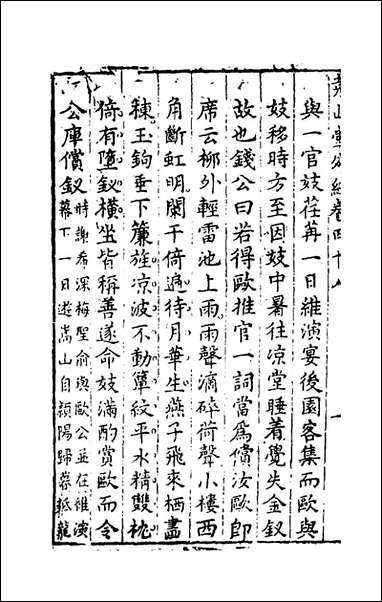 堯山堂外紀卷四十八
與一官妓荏苒一日維演宴後園客集而歐與
妓移時方至因妓中暑往凉堂睡着覺失金釵
故也錢公曰若得歐推官一詞當為償汝歐即
席云柳外輕雷池上雨雨聲滴碎荷聲小樓西
角斷虹明闌干倚遍待月華生燕子飛來栖畵
棟玉鈎垂下簾旌凉波不動簟紋平水精雙枕
倚有墮釵横坐皆稱善遂命妓滿酌賞歐而令
公庫償釵時謝希深梅聖俞與歐公並在維演
幕下一日遊嵩山自潁陽歸暮抵龍